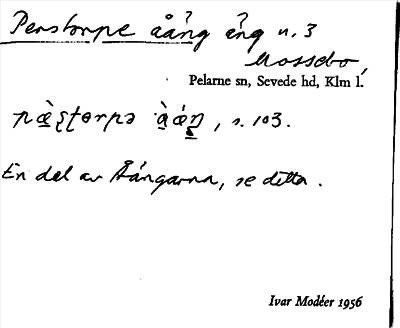 Perstorpe åång äng n. 3
Mossebo,
Pelarne sn, Sevede hd, Klm l.
pæ̀ʂʈɵrpə ὰáŋ, s. 103.
En del av Åängarna, se detta.
Ivar Modéer 1956